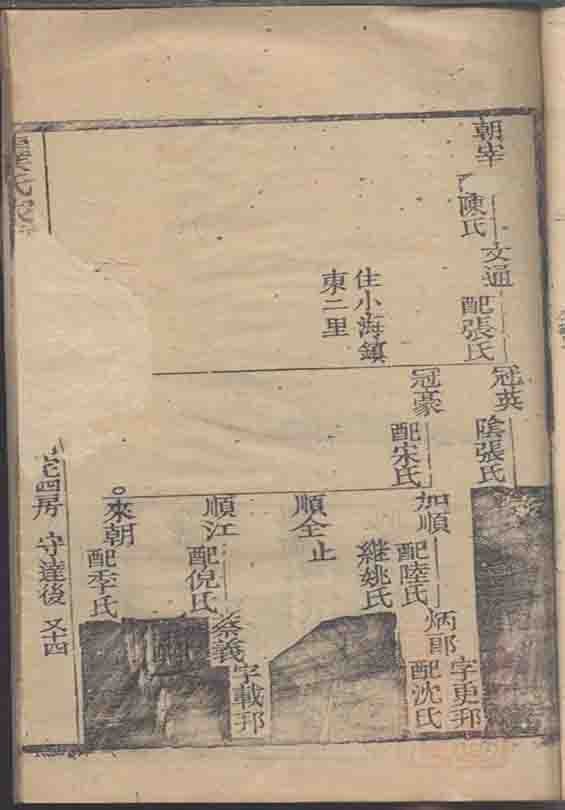 朝宰
陳氏
文通
配張氏
住小海鎮
東二里
冠英
陰張氏
冠豪
配宋氏
加順
配陸氏
繼姚氏
炳
字更邦
配沈氏
順全止
順江
配倪氏
蔡義
字載邦
來朝
配季氏
氏
四房 守達後 又十四